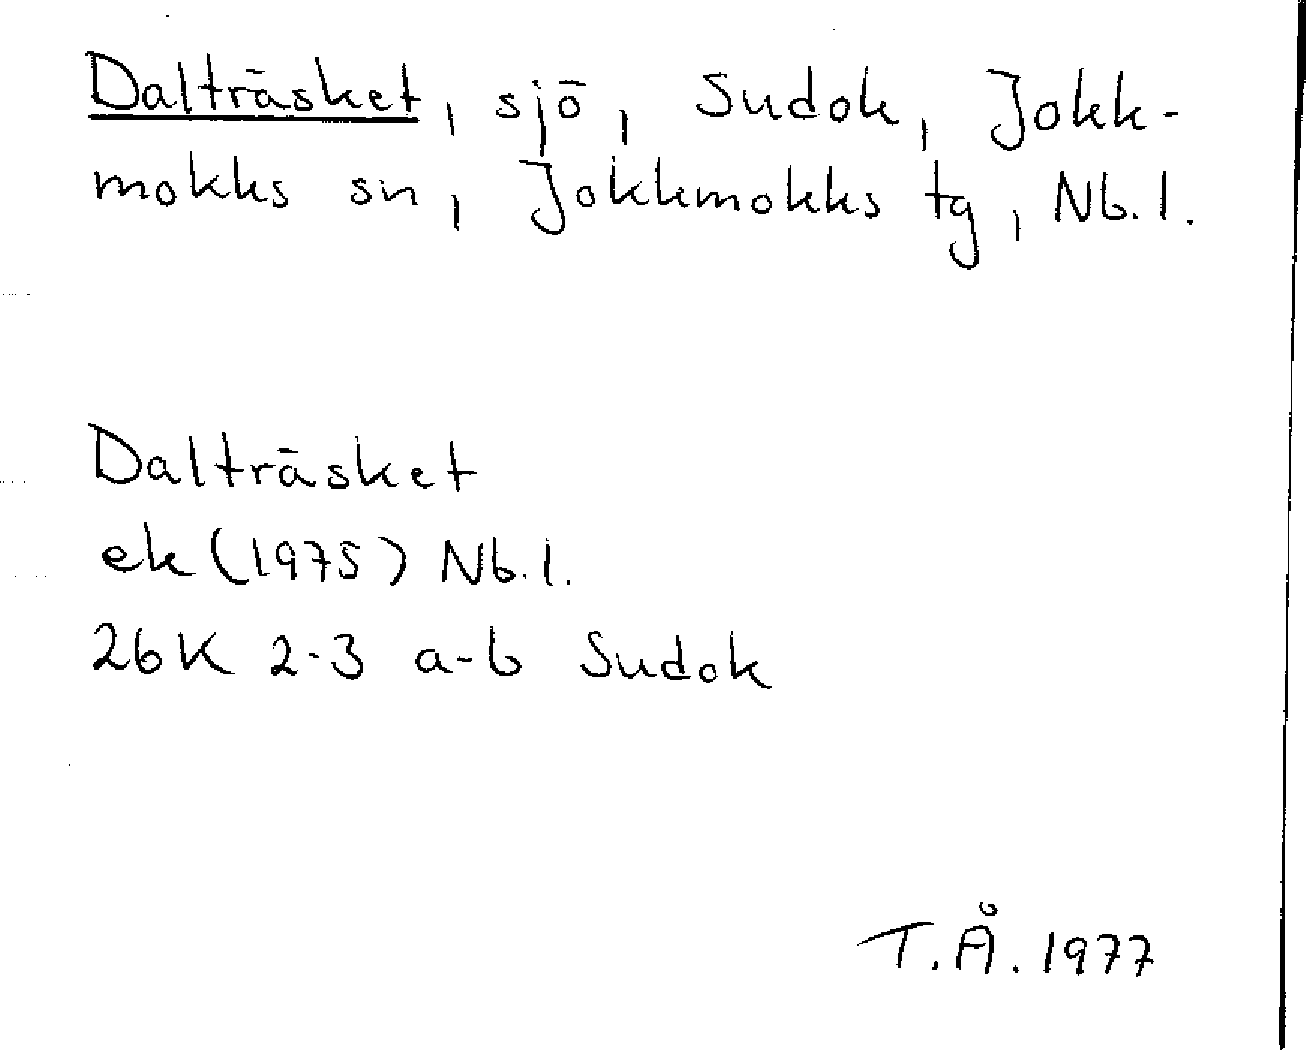 Dalträsket, sjö, Sudok, Jokk-
mokks sn, Jokkmokks tg, Nb. l.
Dalträsket
ek (1975) Nb. l.
26K 2-3 a-b Sudok
T.Å. 1977